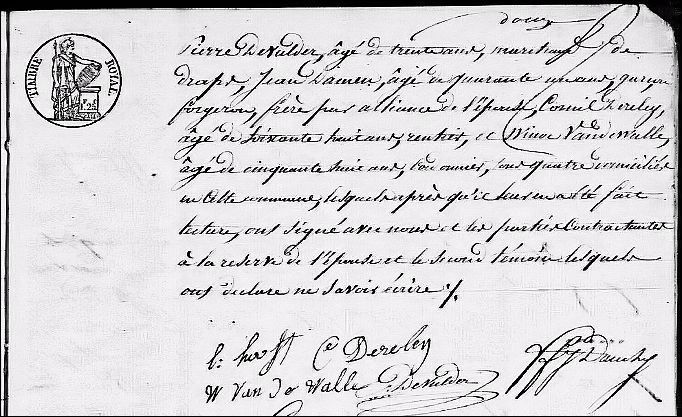 douze
TIMBRE ROYAL
Pierre DeVulder, âgé de trente ans, marchand de
draps, Jean Damen, âgé de quarante un ans,
forgeron, frère par alliance de l'Epouse, Cornil Dereley,
âgé de soixante huit ans, rentier, et Winoc Vandewalle,
âgé de cinquante huit ans, tous quatre domiciliés
en cette commune, lesquels après qu'il leur en a été fait
lecture, ont signé avec nous et les parties Contractantes
à la reserve de l'Epouse et le second témoin lesquels
ont declaré ne savoir écrire ./.
C Dereley
W Van De Walle DeVulder